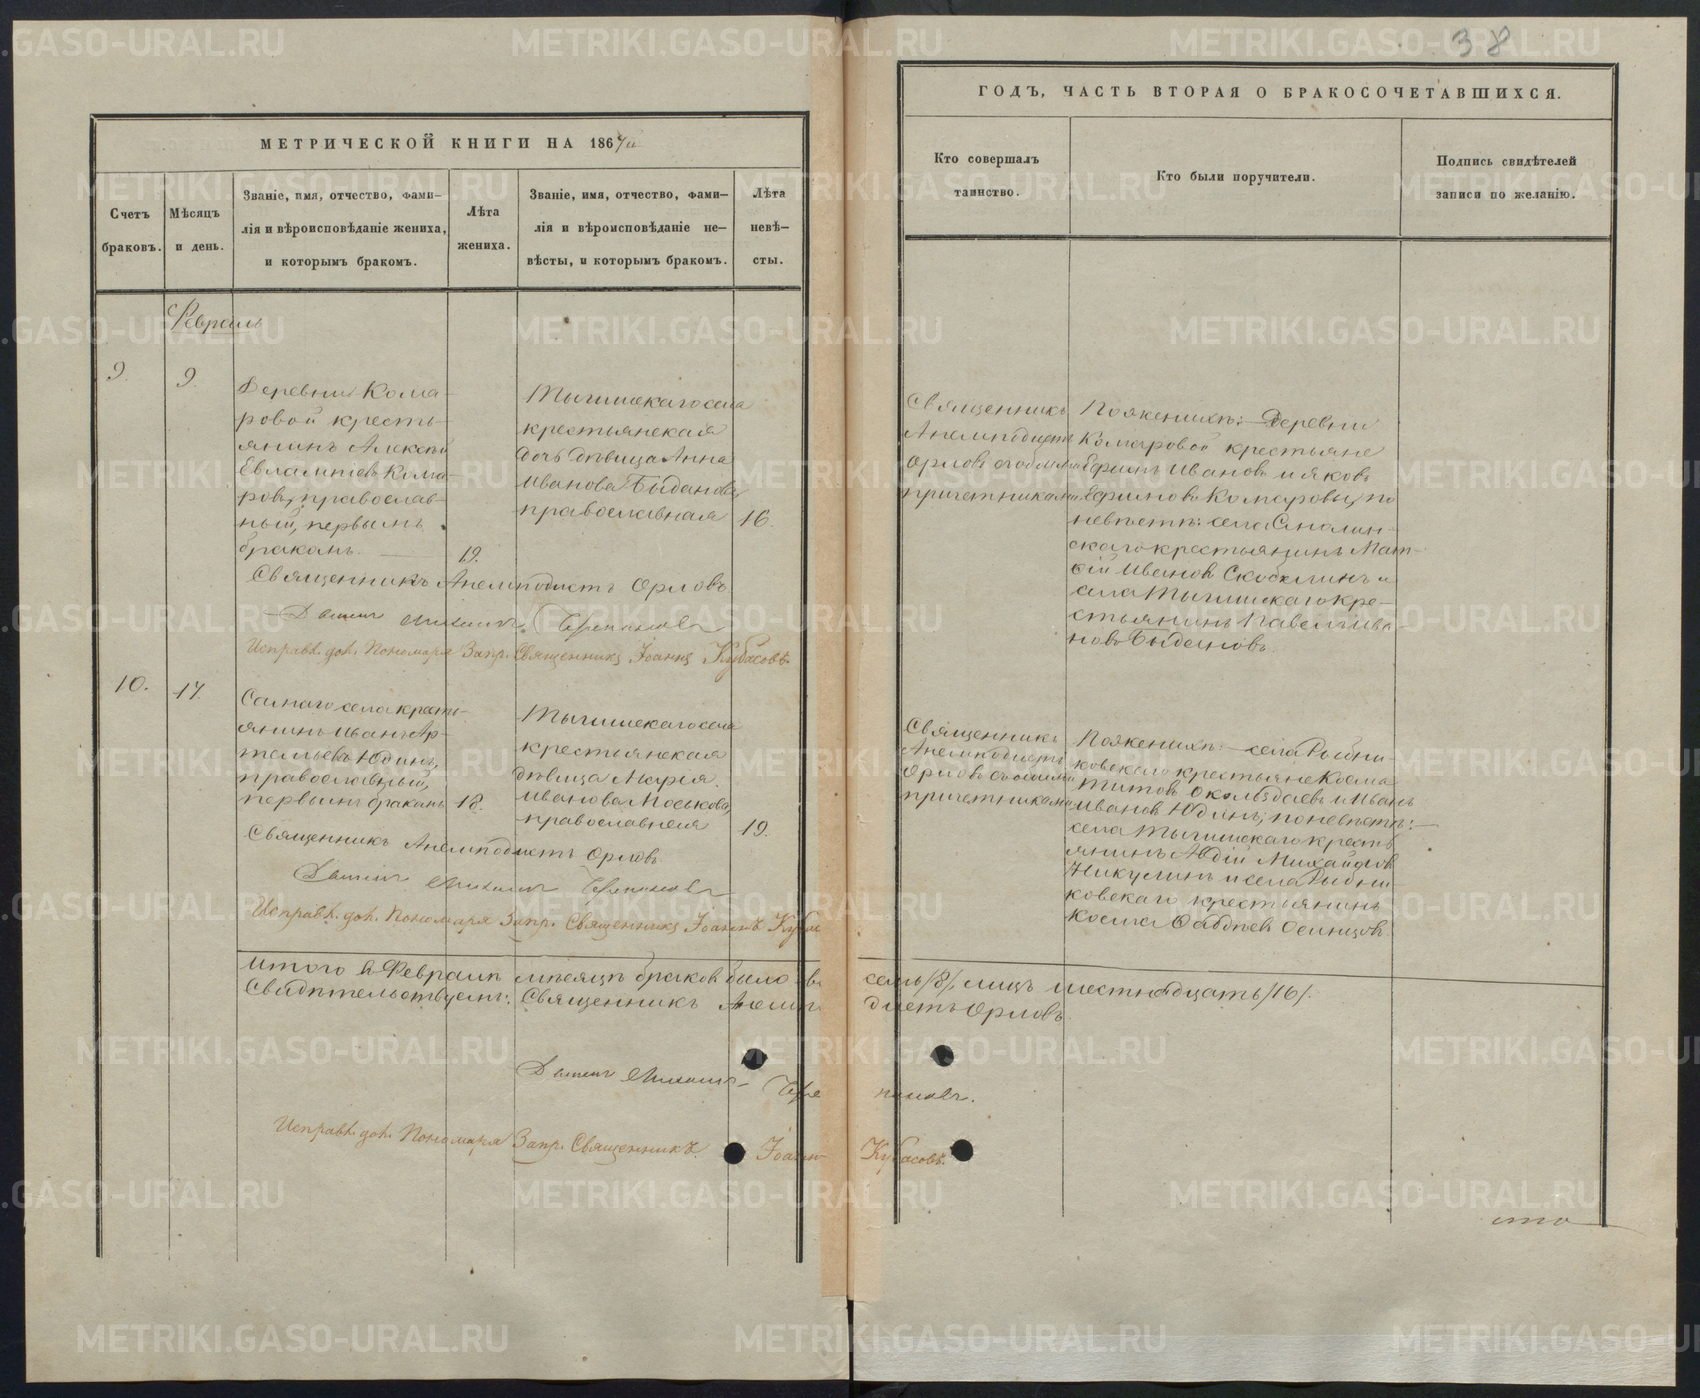 38
МЕТРИЧЕСКОЙ КНИГИ НА 1867й
ГОДЪ, ЧАСТЬ ВТОРАЯ О БРАКОСОЧЕТАВШИХСЯ.
Счетъ
браковъ.
Мѣсяцъ
и день.
Званіе, имя, отчество, фами-
лія и вѣроисповѣданіе жениха,
и которымъ бракомъ.
Лѣта
жениха.
Званіе, имя, отчество, фами-
лія и вѣроисповѣданіе не-
вѣсты, и которымъ бракомъ.
Лѣта
невѣ-
сты.
Кто совершалъ
таинство.
Кто были поручители.
Подпись свидѣтелей
записи по желанію.
Февраль
9.
9.
Деревни Кома-
ровой кресть-
янинъ Алексѣй
Евлампіевъ Кома-
ровъ, православ-
ный, первымъ
бракомъ.
19.
крестьянская
дочь дѣвица Анна
Иванова
православная
16.
Священникъ
Анемподистъ
Орловъ
причетниками
По женихѣ: Деревни
Комаровой крестьяне
Ивановъ и Яковъ
Комаровы, по
невѣстѣ: села
скаго крестьянинъ Мат-
ѳій Ивановъ
села
стьянинъ Павелъ Ива-
новъ
Священникъ Анемподистъ Орловъ
Михаилъ
Исправл. дол. Пономаря Запр. Священникъ Іоаннъ Кубасовъ.
10.
17.
села кресть-
янинъ Иванъ Ар-
темьевъ Юдинъ,
православный,
первымъ бракомъ
18.
крестьянская
дѣвица Марія
Иванова
православная
19.
Священникъ
Анемподистъ
Орловъ
причетниками
По женихѣ: села Рыбни-
ковскаго крестьяне Косма
Титовъ и Иванъ
Ивановъ Юдинъ; по невѣстѣ:
села
янинъ Авдій Михайловъ
Никулинъ и села Рыбни-
ковскаго крестьянинъ
Косма Фаддѣевъ Осинцовъ.
Священникъ Анемподистъ Орловъ
Михаилъ
Исправл. дол. Пономаря Запр. Священникъ Іоаннъ Кубас
Итого въ Февралѣ мѣсяцѣ браковъ было во семь /8/, лицъ шестнадцать /16/.
Свидѣтельствуемъ: Священникъ Анемпо дистъ Орловъ.
Михаилъ
Исправл. дол. Пономаря Запр. Священникъ Іоаннъ Кубасовъ.
METRIKI.GASO-URAL.RU